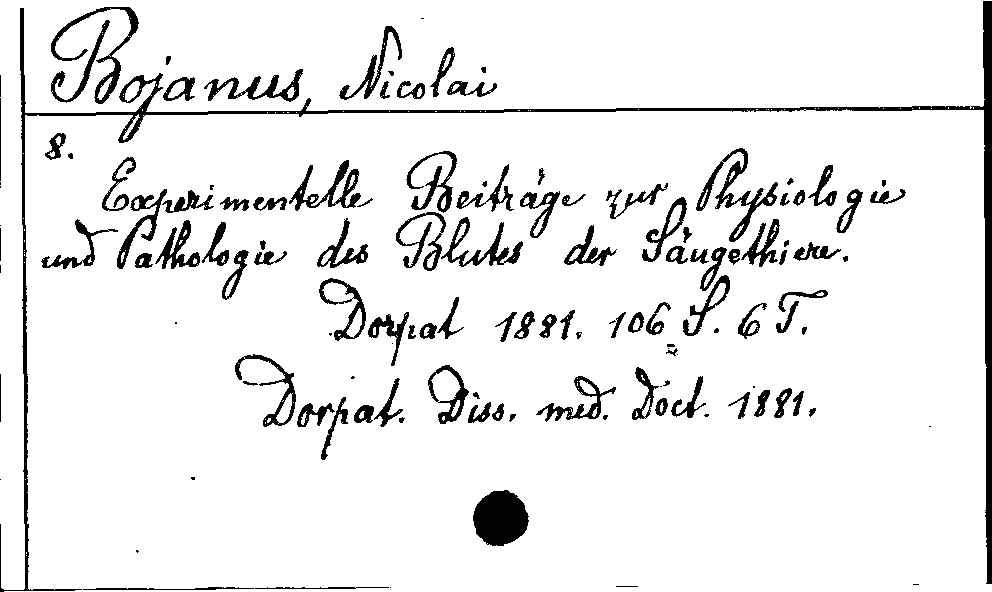 Bojanus, Nicolai
8.
Experimentelle Beiträge zur Physiologie
und Pathologie des Blutes der Säugethiere.
Dorpat 1881. 106 S. 6 T.
Dorpat. Diss. med. Doct. 1881.